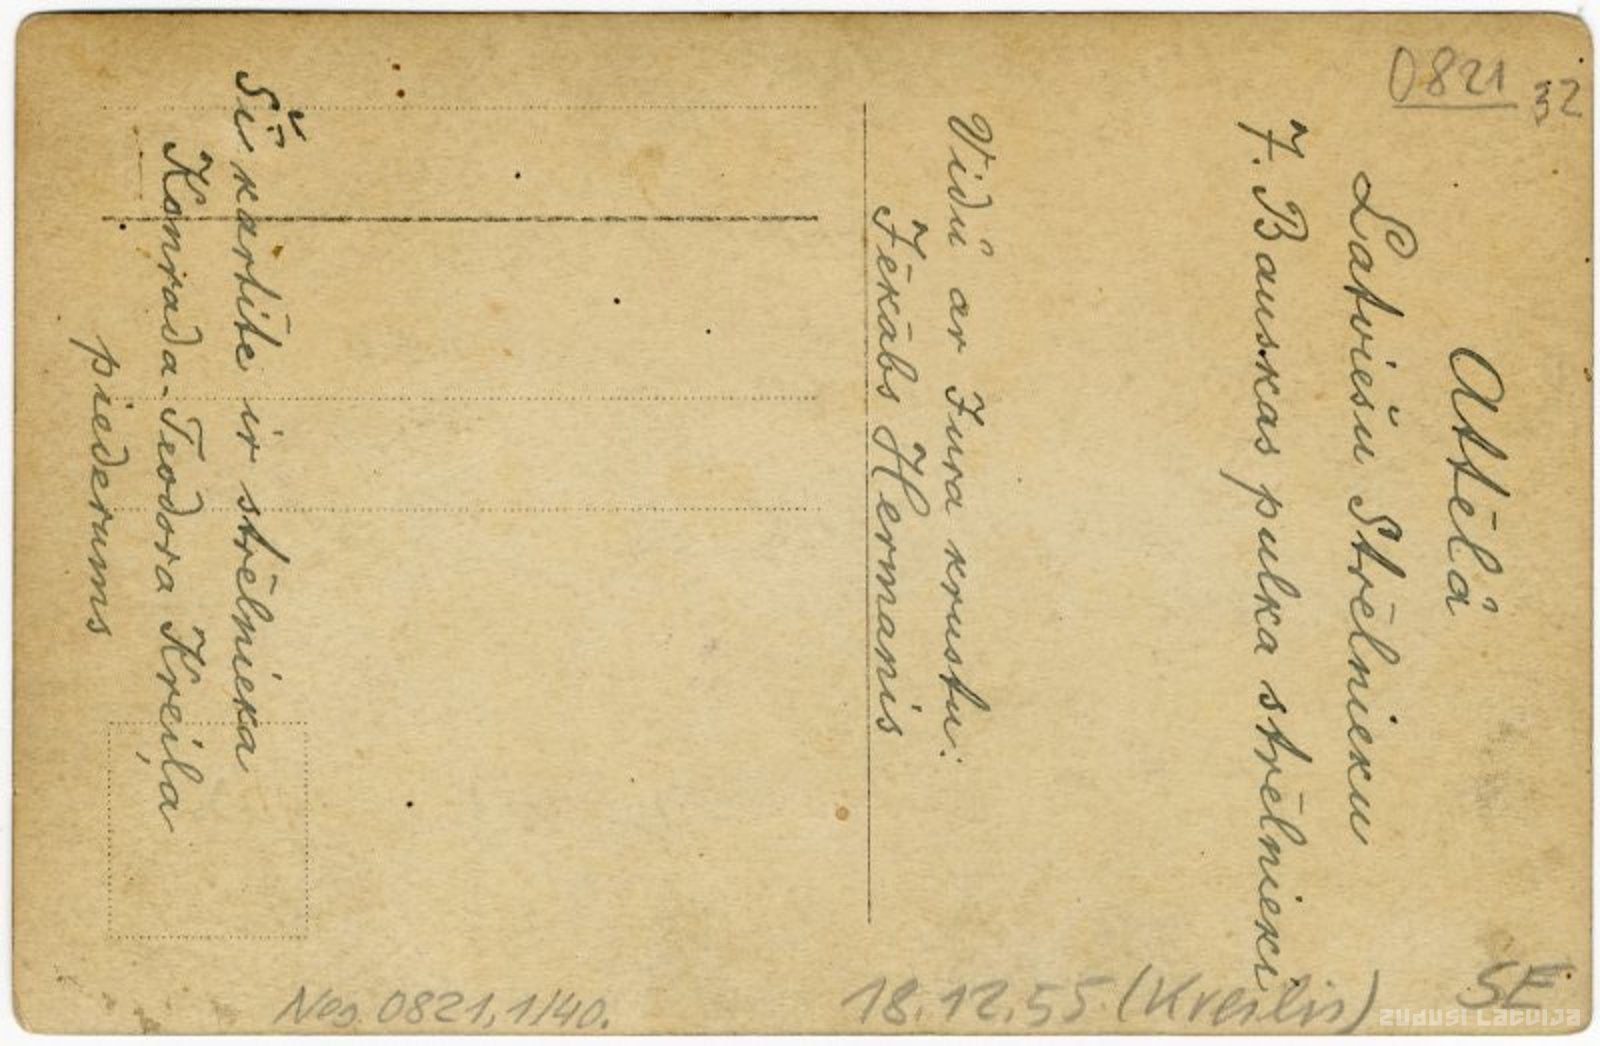 Attēlā
Latviešu Strēlnieku
7. Bauskas pulka strēlnieki
Vidū ar Jura krustu:
Jēkabs Hermanis
Šī kartīte ir strēlnieka
Konrada-Teodora Kreiļa
piederums
0821
32
Neg. 0821,1/40.
18.12.55. (Kreilis)
SE
ZUDUSī LATVIJA